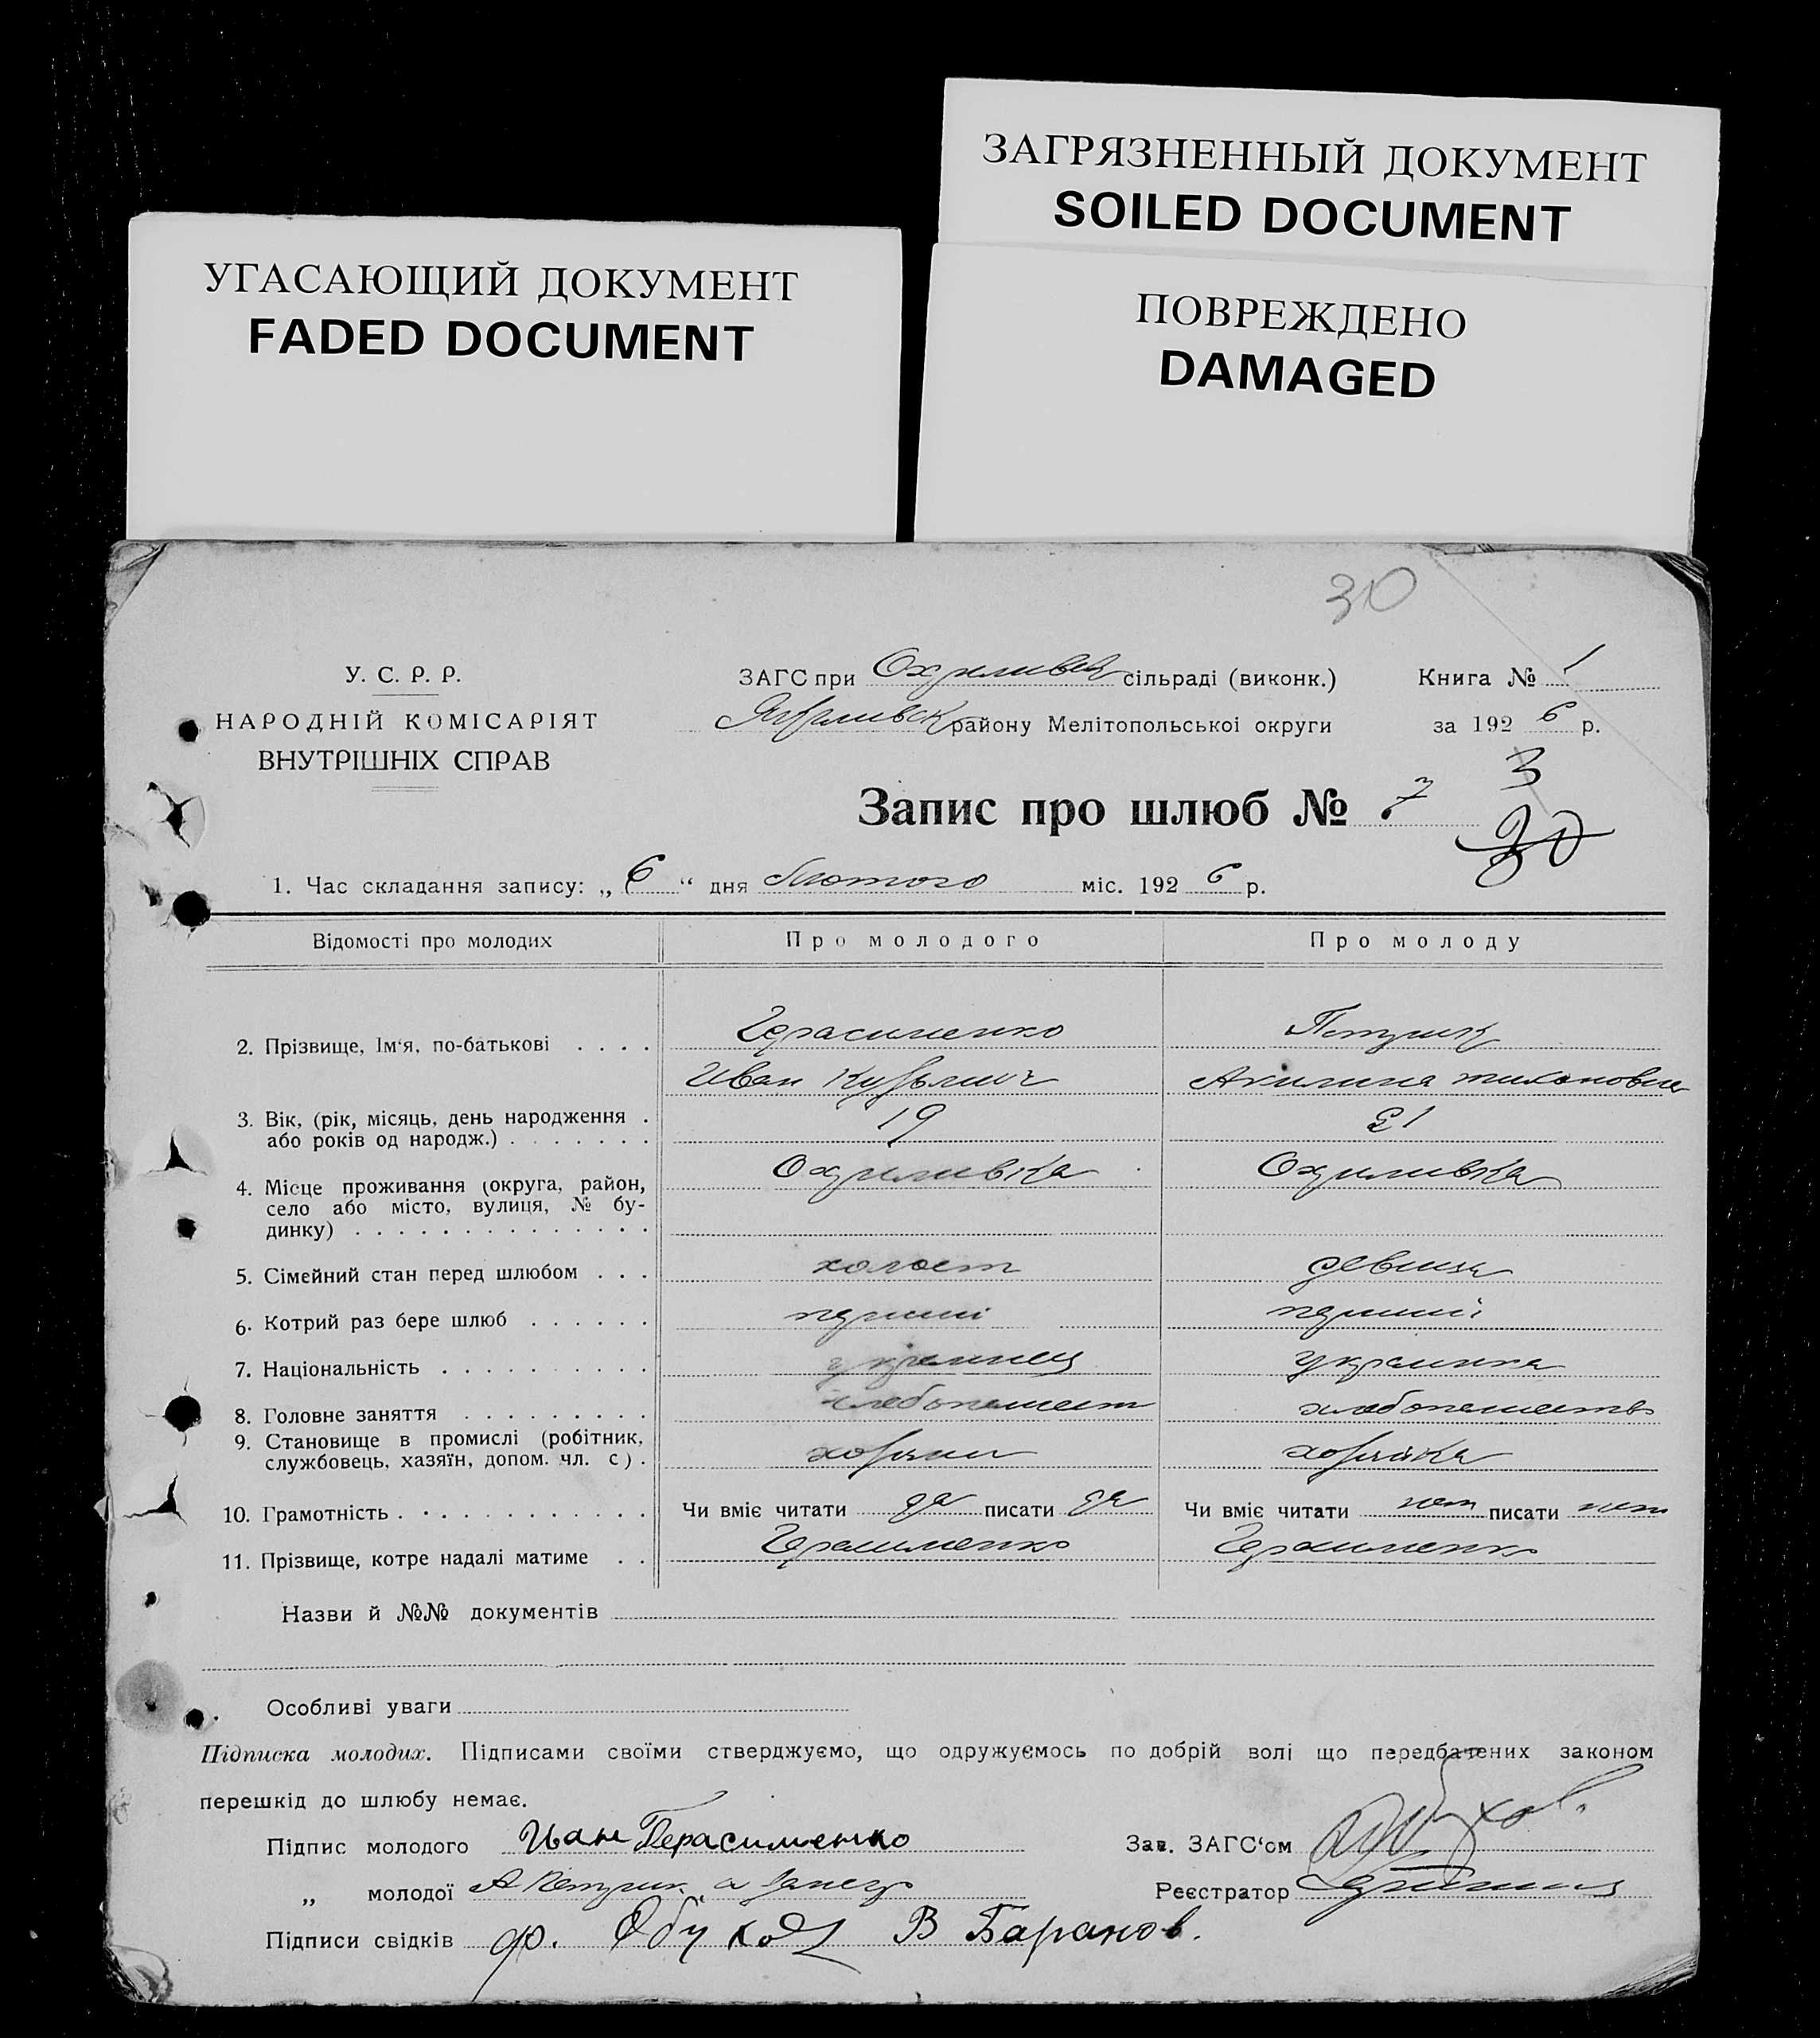 ЗАГРЯЗНЕННЫЙ ДОКУМЕНТ
SOILED DOCUMENT
УГАСАЮЩИЙ ДОКУМЕНТ
FADED DOCUMENT
ПОВРЕЖДЕНО
DAMAGED
30
У. С. Р. Р.
НАРОДНІЙ КОМІСАРІЯТ
ВНУТРІШНІХ СПРАВ
ЗАГС при сільраді (виконк.) Книга № 1
району Мелітопольської округи за 192 6 р.
3
Запис про шлюб № 7
30
1. Час складання запису: „ 6 “ дня Лютого міс. 192 6 р.
Відомості про молодих Про молодого Про молоду
2. Прізвище, Ім‘я, по-батькові . . . . Герасименко
Иван Кузьмич Акилина тихоновна
3. Вік, (рік, місяць, день народження . 19 21
або років од народж.) . . . . . . .
4. Місце проживання (округа, район, Охримивка Охримивка
село або місто, вулиця, № бу-
динку) . . . . . . . . . . . . . .
5. Сімейний стан перед шлюбом . . . холост девица
6. Котрий раз бере шлюб . . . . . .
7. Національність . . . . . . . . . . украинец украинка
8. Головне заняття . . . . . . . . .
9. Становище в промислі (робітник, хозяин хозяйка
службовець, хазяїн, допом. чл. с ) .
10. Грамотність . . . . . . . . . . . . Чи вміє читати да писати да Чи вміє читати нет писати нет
11. Прізвище, котре надалі матиме . . Герасименко Герасименко
Назви й №№ документів
Особливі уваги
Підписка молодих. Підписами своїми стверджуємо, що одружуємось по добрій волі що передбачених законом
перешкід до шлюбу немає.
Підпис молодого Иван Герасименко Зав. ЗАГС‘ом
„ молодої Реєстратор
Підписи свідків ф. Обухов В Баранов.